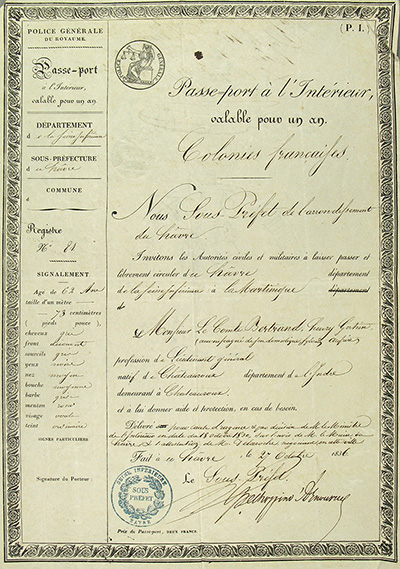 POLICE GÉNÉRALE
DU ROYAUME.
Passe-port
à l'Intérieur,
valable pour un an.
DÉPARTEMENT
d e la Seine Inférieure
SOUS-PRÉFECTURE
d u hâvre
COMMUNE
d
Registre
N.° 81
SIGNALEMENT
Agé de 63 Ans
taille d'un mètre
73 centimètres
( pieds pouces ).
cheveux gris
front
sourcils gris
yeux
nez moyen
bouche moyenne
barbe grise
menton rond
visage ovale
teint ordinaire
SIGNES PARTICULIERS
Signature du Porteur
(P. I.)
Passe-port à l'Intérieur,
valable pour un an.
Colonies françaises.
Nous Sous Préfet de l'arrondissement
du hâvre
Invitons les Autorités civiles et militaires à laisser passer et
librement circuler d u hâvre département
de la Seine Inférieure à la Martinique département
de
Monsieur Le Comte Bertrand, henry Gatien
profession de Lieutenant général
natif de Chateauroux département de l'Indre
demeurant à Chateauroux
et à lui donner aide et protection, en cas de besoin.
Délivré sur
Fait à u hâvre le 27 Octobre 1836
Le Sous Préfet
SOUS
PRÉFET
HAVRE
Prix du Passe-port, DEUX FRANCS